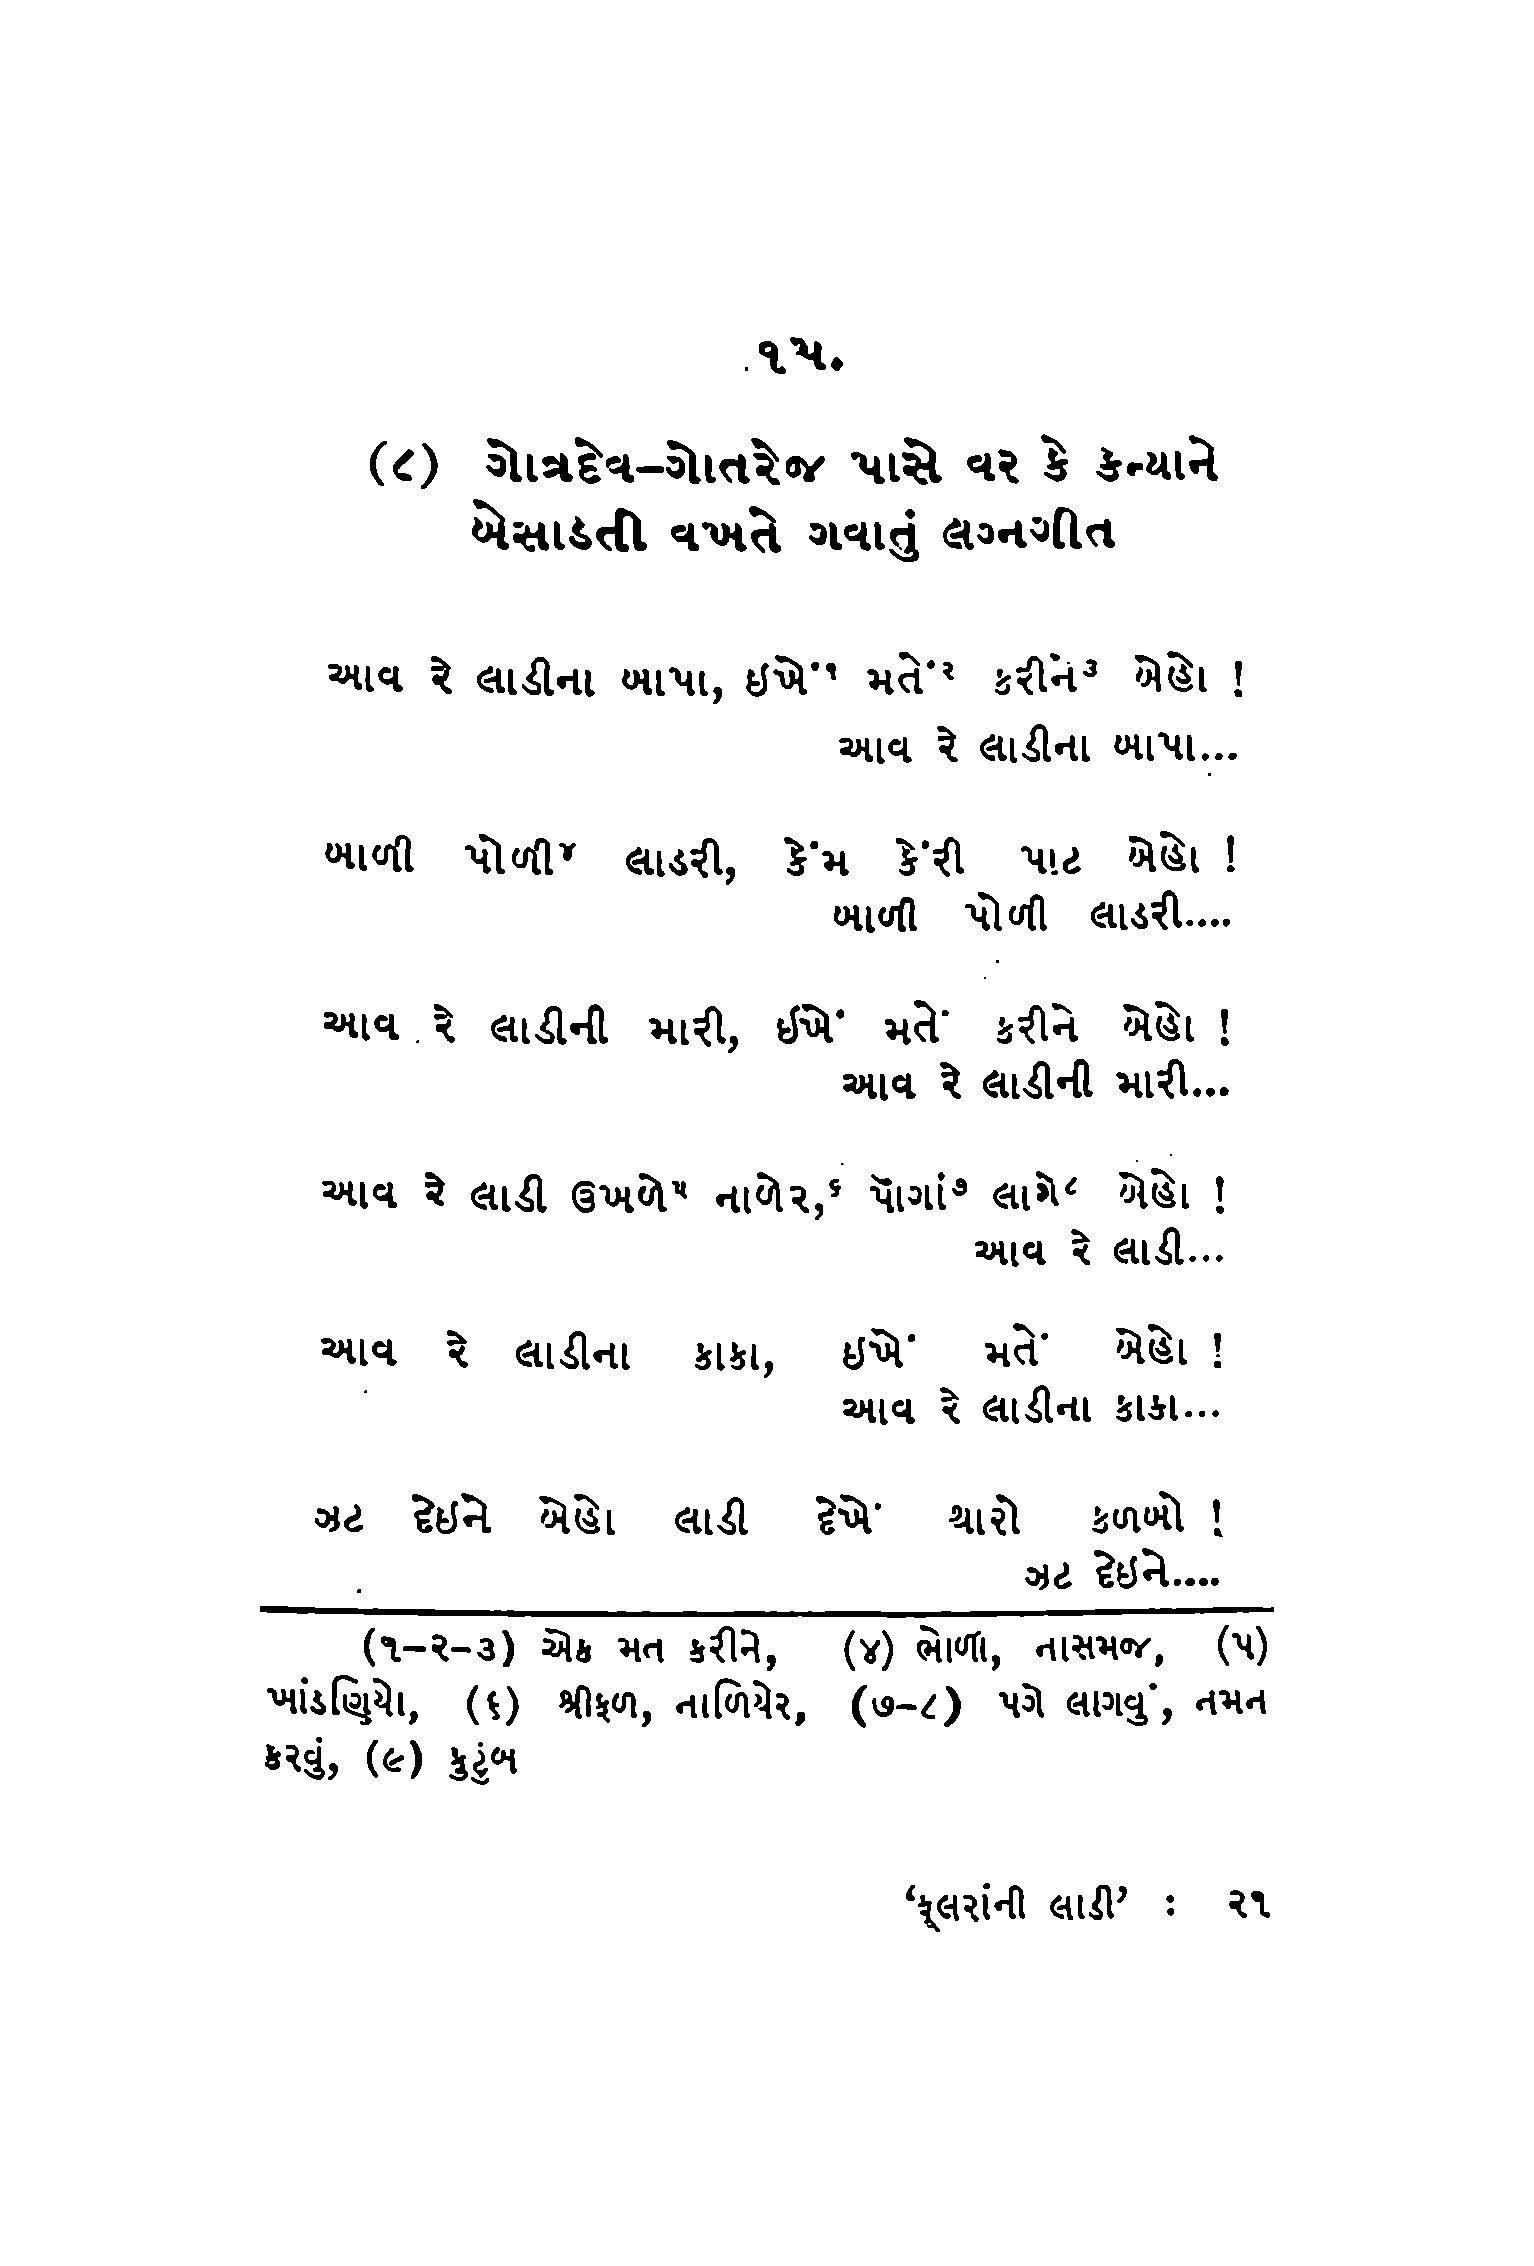 ૧૫.
(૮) ગોત્રદેવ-ગોતરેજ પાસે વર કે કન્યાને
બેસાડતી વખતે ગવાતું લગ્નગીત
આવ રે લાડીના બાપા, ઇખેં૧ મતેં૨ કરીનં૩ બેહો !
આવ રે લાડીના બાપા...
બાળી પોળી૪ લાડરી, કેંમ કેંરી પાટ બેહો !
બાળી પોળી લાડરી....
આવ રે લાડીની મારી, ઈખેં મતેં કરીને બેહો !
આવ રે લાડીની મારી...
આવ રે લાડી ઉખળે૫ નાળેર,૬ પૉગાં૭ લાગે૮ બેહો !
આવ રે લાડી...
આવ રે લાડીના કાકા, ઇખેં મતેં બેહો !
આવ રે લાડીના કાકા...
ઝટ દેઇને બેહો લાડી દેખેં થારો કળબો !
ઝટ દેઇને....
(૧-૨-૩) એક મત કરીને, (૪) ભોળા, નાસમજ, (૫)
ખાંડણિયો, (૬) શ્રીફળ, નાળિયેર, (૭-૮) પગે લાગવું, નમન
કરવું, (૯) કુટુંબ
‘ફૂલરાંની લાડી’ : ૨૧